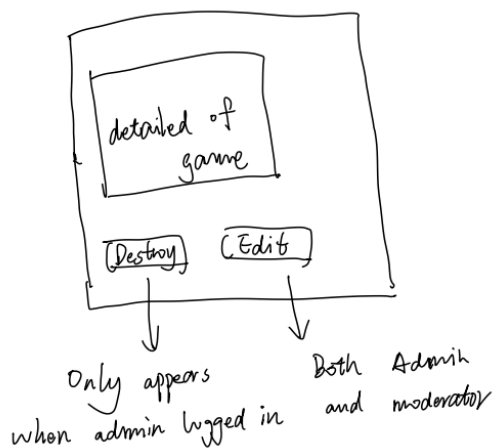 detailed of
game
Destroy
Edit
Only appears
when admin logged in
Both Admin
and moderator